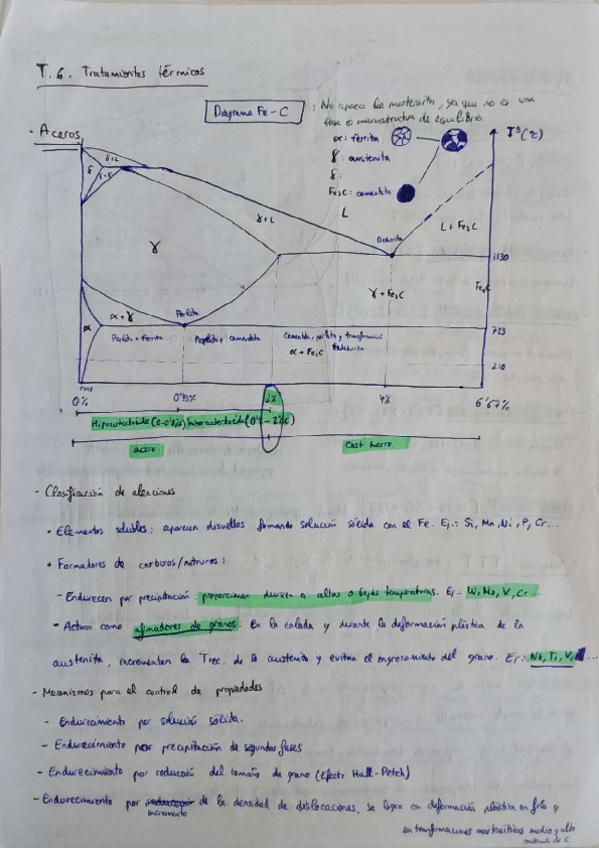 T.6. Tratamientos térmicos
Diagrama Fe-C
: No aparece la martensita, ya que no es una
fase o microestructura de equilibrio.
- Aceros
α: ferrita
γ: austenita
δ:
Fe3C: cementita
Tª(ºC)
δ+L
δ
δ+γ
γ
γ+L
L
L+Fe3C
1130
Fe3C
γ+Fe3C
α+γ
Perlita
α
723
Perlita + ferrita
Perlita + cementita
Cementita, perlita y transformación
ledeburita
α+Fe3C
210
0%
2%
4%
6'67%
acero
Cast hierro
- Clasificación de aleaciones
• Elementos solubles: aparecen disueltos formando solución sólida con el Fe. Ej.: Si, Mn, Ni, P, Cr...
• Formadores de carburos/nitruros:
- Endurecen por precipitación: proporcionan dureza a altas o bajas temperaturas. Ej: W, Mo, V, Cr...
- Actuan como afinadores de granos: En la colada y durante la deformación plástica de la
austenita, incrementan la Trec. de la austenita y evitan el engrosamiento del grano. Ej: Nb, Ti, V, ...
- Mecanismos para el control de propiedades
- Endurecimiento por solución sólida.
- Endurecimiento por precipitación de segundas fases
- Endurecimiento por reducción del tamaño de grano (Efecto Hall-Petch)
- Endurecimiento por incremento de la densidad de dislocaciones, se logra en deformación plástica en frío y
en transformaciones martensíticas medio y alto
contenido de C